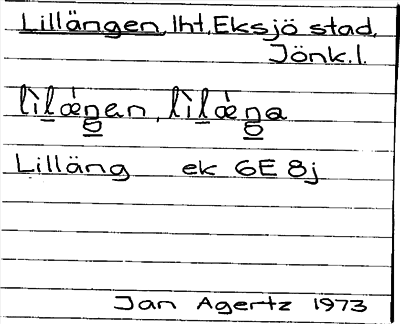 Lillängen, lht, Eksjö stad,
Jönk. l.
lìlǽŋen, lìlǽŋa
Lilläng ek 6E 8j
Jan Agertz 1973